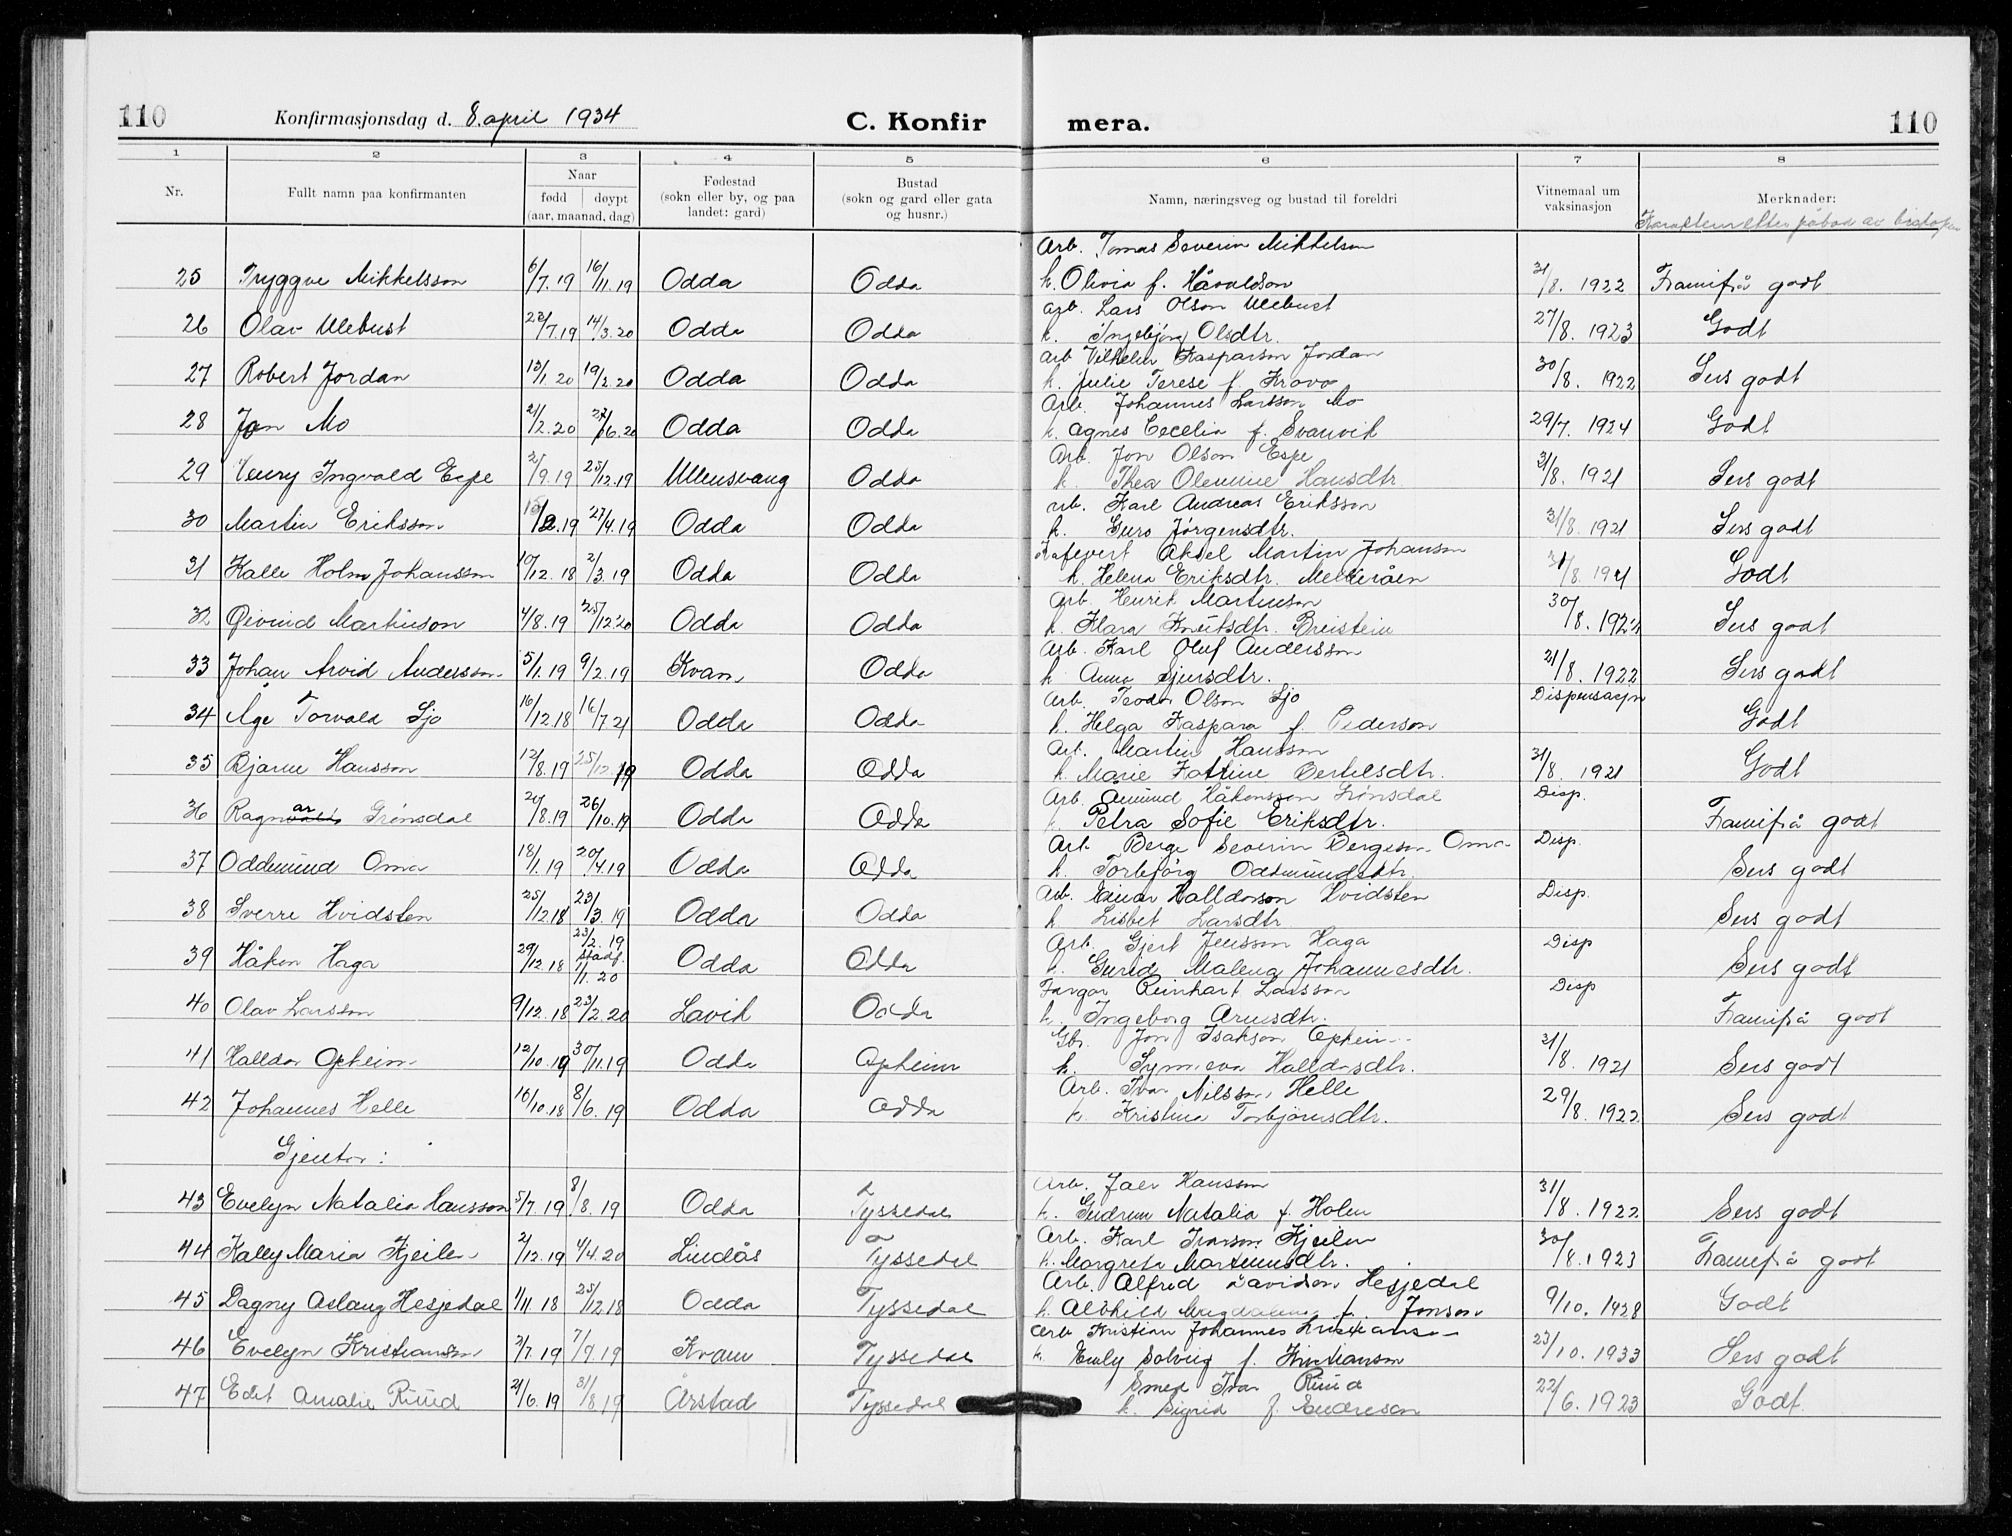 110 Konfirmasjonsdag d. 8. april 1934 C. Konfir mera. 110
1 2 3 4 5 6 7 8
Nr. Fullt namn paa konfirmanten Naar fødd døypt (aar, maanad, dag) Fødestad (sokn eller by, og paa landet: gard) Bustad (sokn og gard eller gata og husnr.) Namn, næringsveg og bustad til foreldri Vitnemaal um vaksinasjon Merknader:
Karakteren etter påbod av
Arb. Tomas Severin Mikkelson
25 Tryggve Mikkelsson 6/7.19 16/11.19 Odda Odda k. Olivia f. Håvaldson 31/8. 1922 Framifrå godt
Arb. Lars Olson Ulebust
26 Olav Ulebust 22/7.19 14/3.20 Odda Odda k. Ingebjørg Olsdtr. 27/8. 1923 Godt
Arb Vilhelm Kasparson Jordan
27 Robert Jordan 13/1.20 19/2.20 Odda Odda k. Julie Terese f. 30/8. 1922 Sers godt
Arb. Johannes Larsson Mo
28 Jon Mo 21/2.20 27/6.20 Odda Odda k. Agnes Cecelia f. Svanvik 29/7. 1924 Godt
Arb. Jon Olson Espe
29 Henry Ingvald Espe 2/9.19 25/12.19 Ullensvang Odda k. Thea Olemine Hansdtr. 31/8. 1921 Sers godt
arb. Karl Andreas Eriksson
30 Martin Eriksson 13/2.19 27/4.19 Odda Odda k. Guro Jørgensdtr. 31/8. 1921 Sers godt
Aksel Martin Johanson
31 Kalle Holm Johansson 10/12.18 2/3.19 Odda Odda k. Helena Eriksdtr. 31/8. 1921 Godt
Arb. Henrik Martinson
32 Øivind Martinson 4/8.19 25/12.20 Odda Odda k. Klara Knutsdtr. Breistein 30/8. 1921 Sers godt
Arb. Karl Oluf Andersson
33 Johan Arvid Andersson 5/1.19 9/2.19 Kvam Odda k Anna Gjersdtr. 31/8. 1922 Sers godt
Arb. Teodor Olson Sjo Dispensasjon
34 Åge Torvald Sjo 16/12.18 16/7.21 Odda Odda k. Helga Kaspara f. Pederson Godt
Arb. Martin Hansson
35 Bjarne Hansson 12/8.19 25/12.19 Odda Odda k. Marie Katrine Bertelsdtr. 31/8. 1921 Godt
Arb. Amund Håkonsson Grønsdal Disp.
36 Ragnar Grønsdal 20/8.19 26/10.19 Odda Odda k Petra Sofie Eriksdtr. Framifrå godt
Arb Berge Severin Bergson Oma Disp.
37 Oddmund Oma 18/1.19 20/4.19 Odda Odda k. Torbjørg Oddmundsdtr. Sers godt
Arb. Einar Halldorson Hvidsten Disp.
38 Sverre Hvidsten 25/12.18 23/3.19 Odda Odda k Lisbet Larsdtr. Sers godt
23/2.19 Arb. Gjert Jensson Haga Disp
39 Håkon Haga 29/12.18 stadf. 11.20 Odda Odda k. Gurid Malena Johannesdtr. Sers godt
Farger Reinhart Larsson Disp
40 Olav Larsson 9/12.18 23/2.20 Lavik Odda k. Ingeborg Arnesdtr. Framifrå godt
Gbr. Jon Isakson Opheim
41 Halldor Opheim 12/10.19 30/11.19 Odda Opheim k. Synneva Halldorsdtr. 31/8. 1921 Sers godt
Arb. Ivar Nilsson Helle
42 Johannes Helle 16/10.18 8/6.19 Odda Odda k. Kristina Torbjørnsdtr. 29/8. 1922 Sers godt
Gjentor:
Arb. Joar Hansson
43 Evelyn Natalia Hansson 5/7.19 8/8.19 Odda Tyssedal k. Gudrun Natalia f. Holm 31/8. 1922 Sers godt
Arb. Karl Ivarson Kjeilen
44 Kally Maria Kjeilen 2/12.19 4/4.20 Lindås Tyssedal k. Margreta Martinusdtr. 30/8. 1923 Framifrå godt
Arb. Alfred Davidson Hesjedal
45 Dagny Aslaug Hesjedal 1/11.18 25/12.18 Odda Tyssedal k. Alvhild Magdalena f. Jonson 9/10. 1928 Godt
Arb Kristian Johannes Kristianson
46 Evelyn Kristianson 3/7.19 7/9.19 Kvam Tyssedal k. Emly Solveig f. Kristianson 23/10. 1933 Sers godt
Smed Ivar Ruud
47 Edit Amalie Ruud 21/6.19 31/8.19 Årstad Tyssedal k. Sigrid f. Andreson 22/6. 1923 Godt.